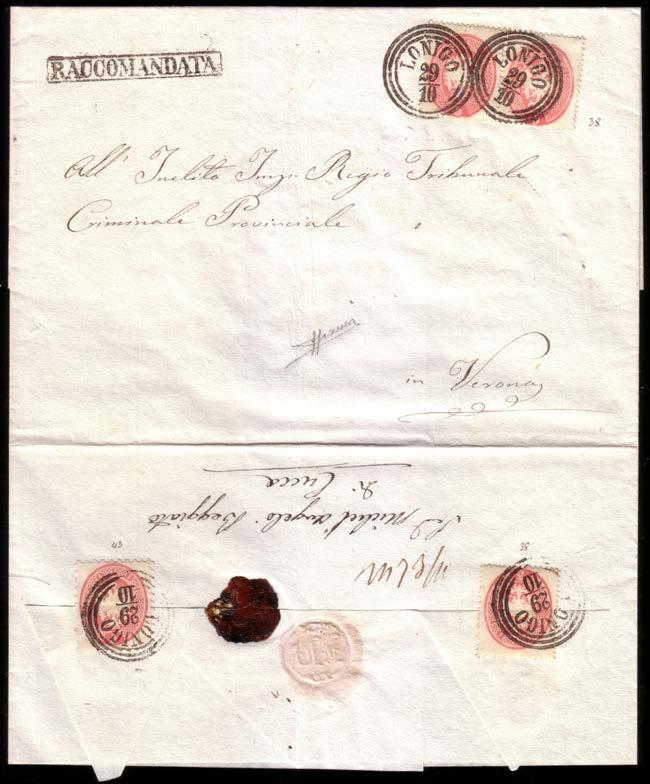 RACCOMANDATA
LONIGO
29
10
LONIGO
29
10
38
All' Inclito Imp. Regio Tribunale
Criminale Provinciale
in Verona
di Cucca
Michel Angelo Beggiato
43
38
LONIGO
29
10
LONIGO
29
10